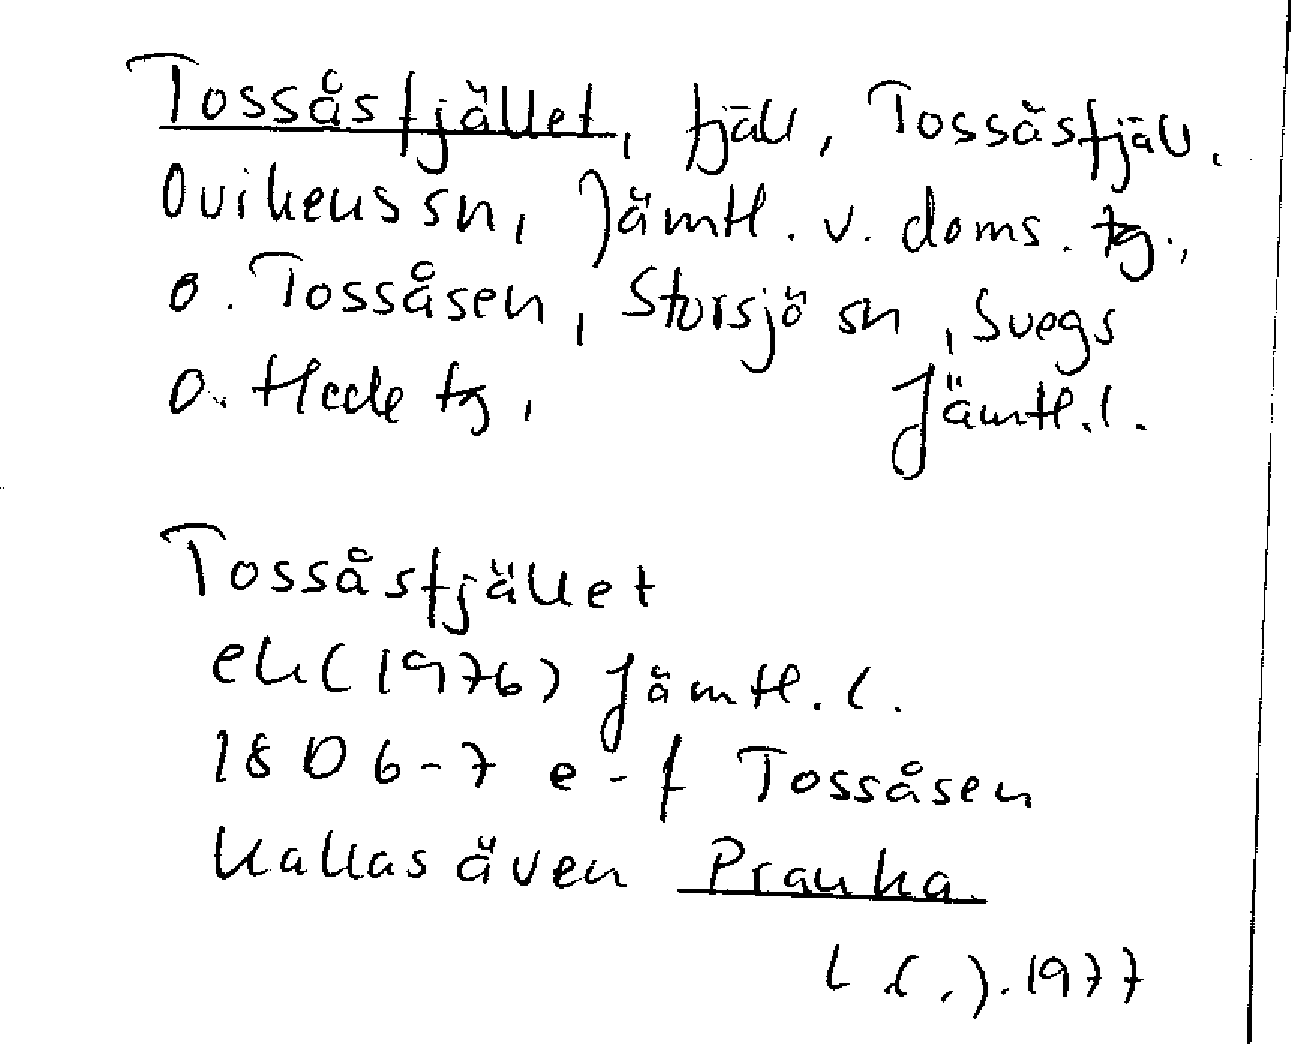 Tossåsfjället, fjäll, Tossåsfjäll,
Ovikens sn, Jämtl. v. doms. tg.,
o. Tossåsen, Storsjö sn, Svegs
o. Hede tg, Jämtl. l.
Tossåsfjället
ek (1976) Jämtl. l.
18 D 6-7 e-f Tossåsen
Kallas även Pranka.
1977